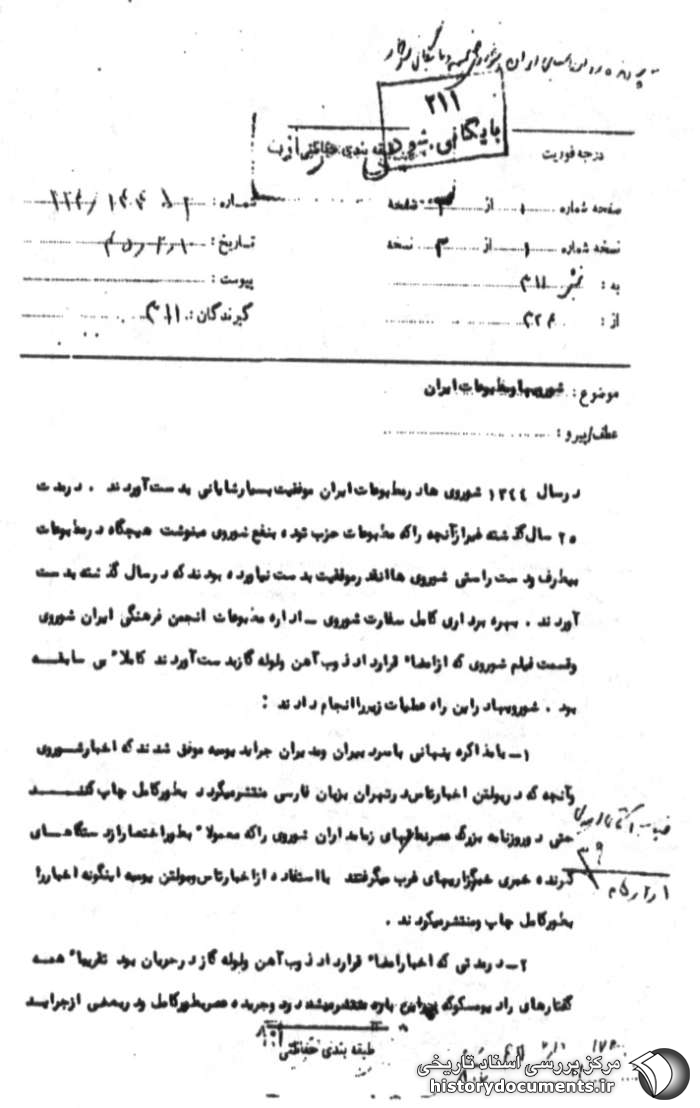 ۲۱۱
بایگانی شود
درجه فوریت
طبقه بندی حفاظتی
صفحه شماره ۱ از ۲ صفحه
شماره:
نسخه شماره ۱ از ۳ نسخه
تاریخ:
به: ۳۱۱
پیوست:
از: ۳۲۶
گیرندگان: ۳۱۱
موضوع: شورویها و مطبوعات ایران
عطف/پیرو:
در سال ۱۳٤٤ شوروی ها در مطبوعات ایران موفقیت بسیار شایانی بدست آوردند . در مدت
۲۵ سال گذشته غیر از آنچه را که مطبوعات حزب توده بنفع شوروی مینوشت هیچگاه در مطبوعات
بیطرف و دست راستی شوروی ها انقدر موفقیت بدست نیاورده بودند که در سال گذشته بدست
آوردند . بهره برداری کامل سفارت شوروی ــ اداره مطبوعات انجمن فرهنگی ایران شوروی
وقسمت فیلم شوروی که از امضاء قرارداد ذوب آهن ولوله گاز بدست آوردند کاملا" بی سابقه
بود . شورویها در این راه عملیات زیر را انجام دادند :
۱ــ با مذاکره پنهانی با سردبیران ومدیران جراید یومیه موفق شدند که اخبار شوروی
وآنچه که در بولتن اخبار تاس در تهران بزبان فارسی منتشر میگردد بطور کامل چاپ کنند
حتی دو روزنامه بزرگ عصر نطقهای زمامداران شوروی را که معمولا" بطور اختصار از دستگاههای
گیرنده خبری خبرگزاریهای غرب میگرفتند با استفاده از اخبار تاس وبولتن یومیه اینگونه اخبار را
بطور کامل چاپ ومنتشر میکردند .
۲ــ در مدتی که اخبار امضاء قرارداد ذوب آهن ولوله گاز در جریان بود تقریبا" همه
گفتارهای رادیو مسکو که در این باره منتشر میشد دو جریده عصر بطور کامل ودر بعضی از جراید
طبقه بندی حفاظتی
مرکز بررسی اسناد تاریخی
historydocuments.ir